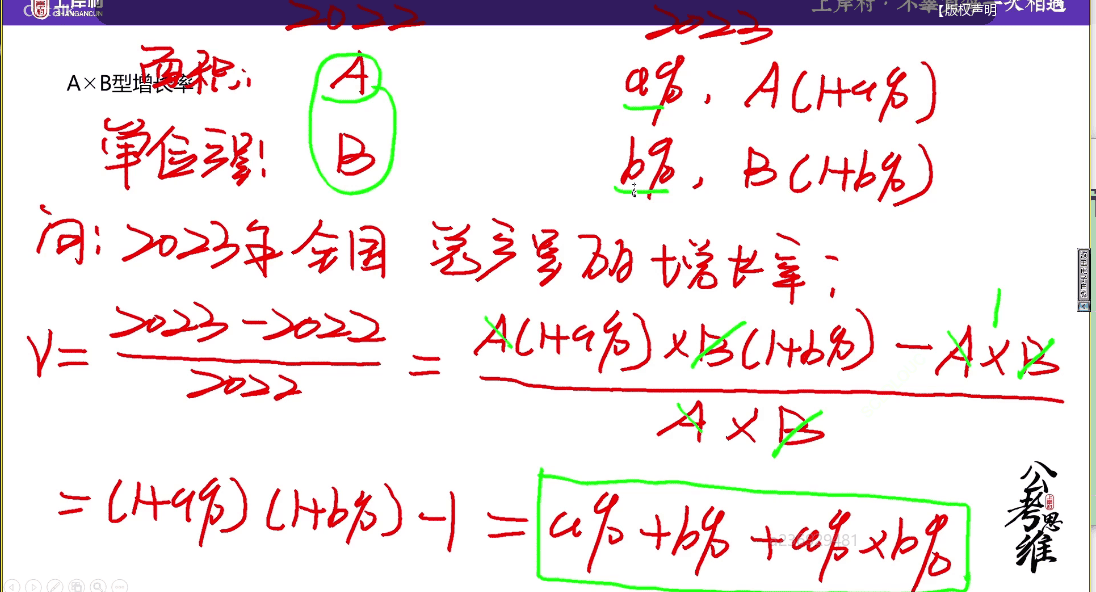 上岸村
SHANGANCUN
上岸村·不辜
【版权声明
次相遇
2022 2023
A×B型增长率
面积: A a%, A(1+a%)
单位产量: B b%, B(1+b%)
问:2023年全国 总产量的增长率:
r= 2023-2022 / 2022 = A(1+a%)×B(1+b%) - A×B / A×B
1
=(1+a%)(1+b%)-1 = a%+b%+a%×b%
公考思维